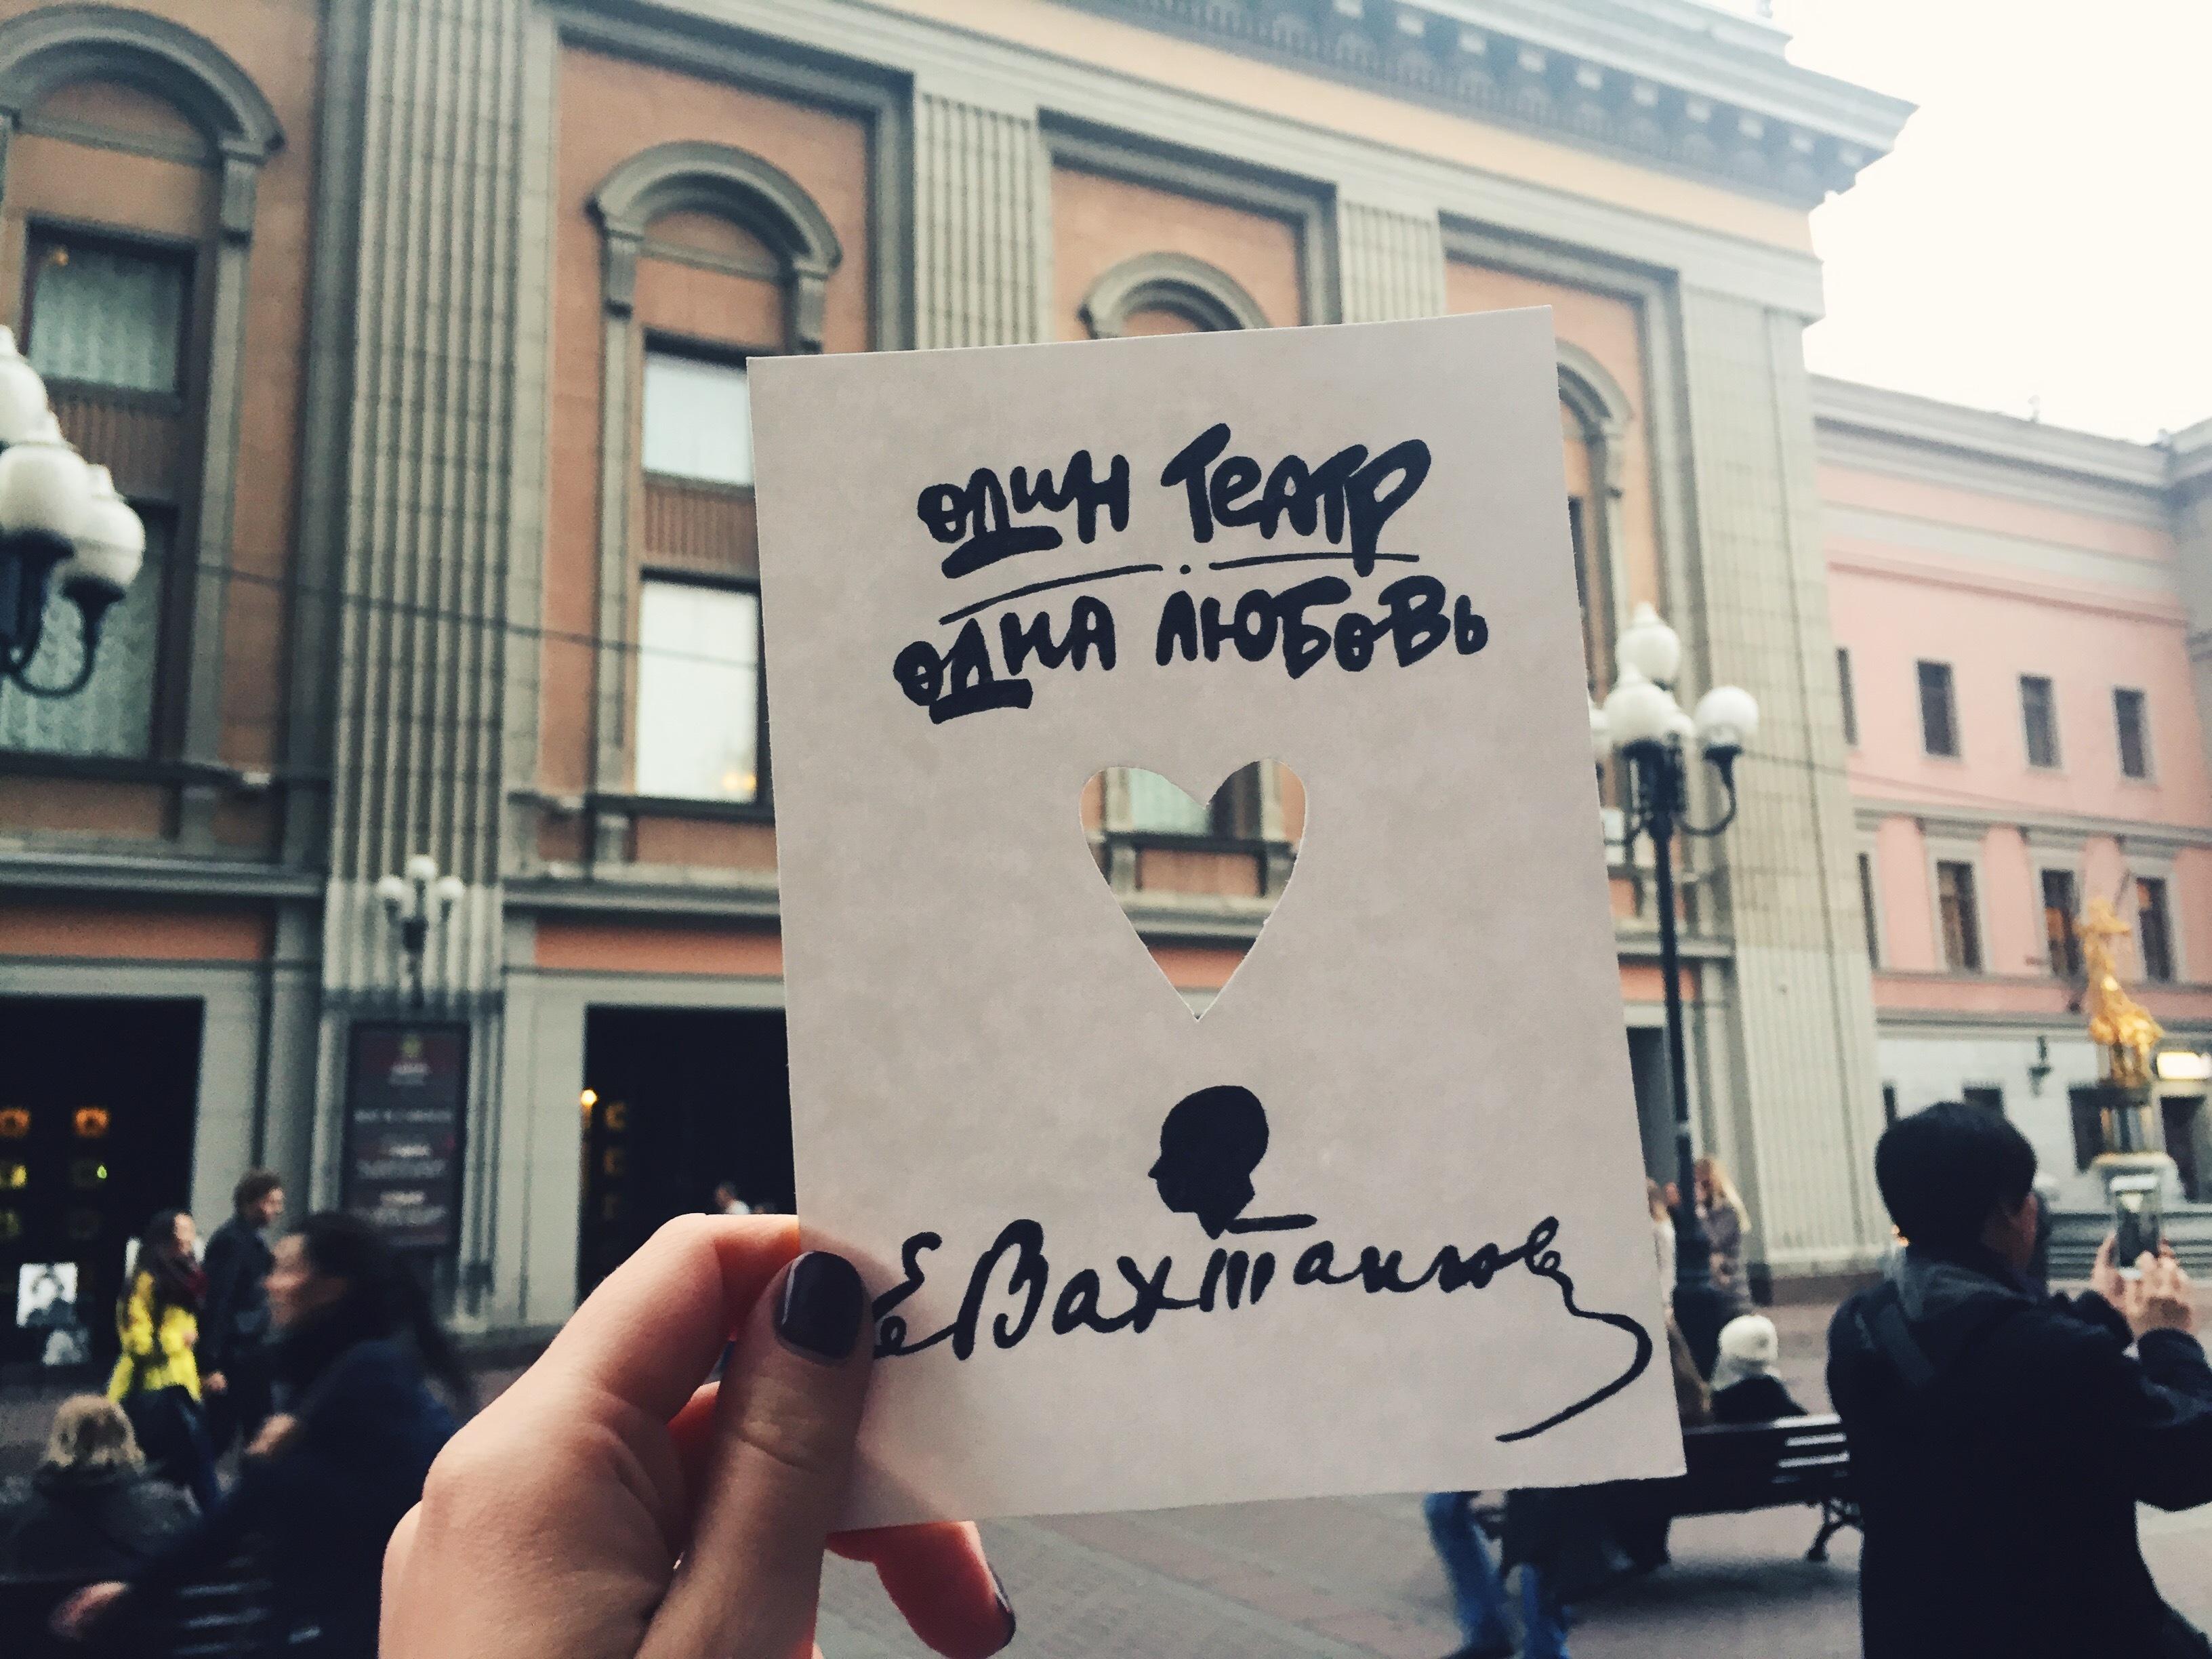 один театр
одна любовь
Е Вахтангов